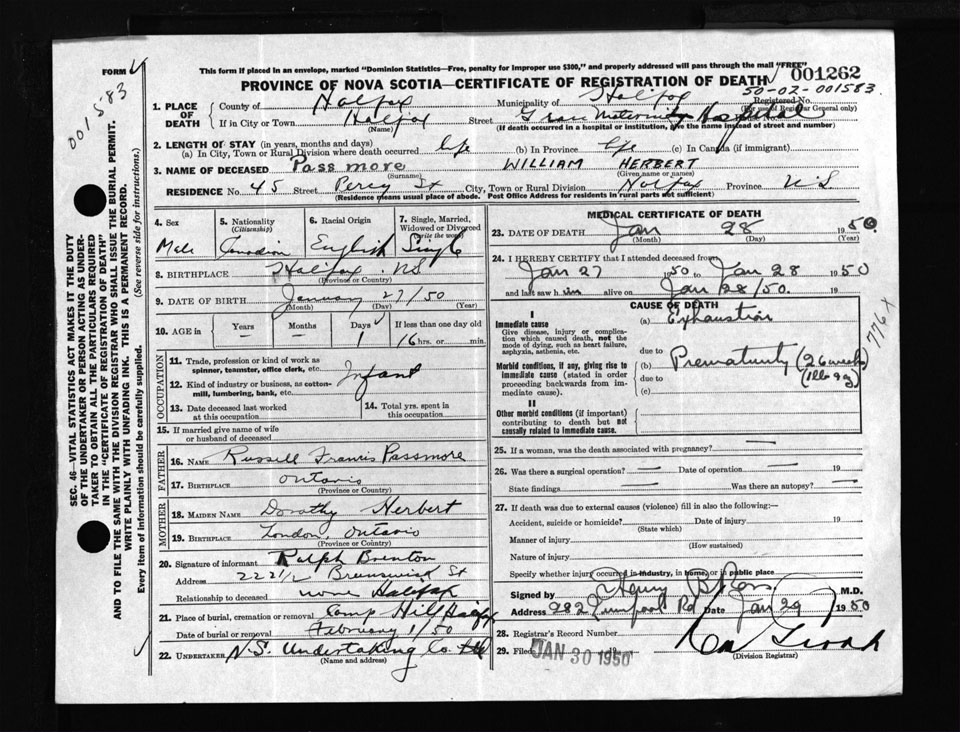 This form if placed in an envelope, marked "Dominion Statistics—Free, penalty for improper use $300," and properly addressed will pass through the mail "FREE"
FORM
PROVINCE OF NOVA SCOTIA—CERTIFICATE OF REGISTRATION OF DEATH 001262
50-02-001583
Registered No.
(For use of Registrar General only)
001583
1. PLACE OF DEATH { County of Halifax Municipality of Halifax
If in City or Town Halifax Street Grace Maternity Hospital
(Name) (If death occurred in a hospital or institution, give the name instead of street and number)
2. LENGTH OF STAY (in years, months and days)
(a) In City, Town or Rural Division where death occurred life (b) In Province life (c) In Canada (if immigrant)
3. NAME OF DECEASED Passmore WILLIAM HERBERT
(Surname) (Given name or names)
RESIDENCE No. 45 Street Percy St City, Town or Rural Division Halifax Province N S
(Residence means usual place of abode. Post Office Address for residents in rural parts not sufficient)
4. Sex 5. Nationality (Citizenship) 6. Racial Origin 7. Single, Married, Widowed or Divorced (write the word)
Male Canadian English Single
8. BIRTHPLACE Halifax NS
(Province or Country)
9. DATE OF BIRTH January 27/50
(Month) (Day) (Year)
10. AGE in Years Months Days If less than one day old
— — 1 16 hrs. or min.
OCCUPATION
11. Trade, profession or kind of work as spinner, teamster, office clerk, etc. Infant
12. Kind of industry or business, as cotton-mill, lumbering, bank, etc.
13. Date deceased last worked at this occupation 14. Total yrs. spent in this occupation
15. If married give name of wife or husband of deceased
FATHER
16. NAME Russell Francis Passmore
17. BIRTHPLACE Ontario
(Province or Country)
MOTHER
18. MAIDEN NAME Dorothy Herbert
19. BIRTHPLACE London, Ontario
(Province or Country)
20. Signature of informant Ralph Brenton
Address 222 1/2 Brunswick St
Relationship to deceased none Halifax
21. Place of burial, cremation or removal Camp Hill Halifax
Date of burial or removal February 1/50
22. UNDERTAKER N.S. Undertaking Co Ltd
(Name and address)
MEDICAL CERTIFICATE OF DEATH
23. DATE OF DEATH Jan 28 1950.
(Month) (Day) (Year)
24. I HEREBY CERTIFY that I attended deceased from
Jan 27 1950 to Jan 28 1950
and last saw him alive on Jan 28/50. 19
CAUSE OF DEATH
I
Immediate cause (a) Exhaustion
Give disease, injury or complication which caused death, not the mode of dying, such as heart failure, asphyxia, asthenia, etc.
due to
Morbid conditions, if any, giving rise to immediate cause (stated in order proceeding backwards from immediate cause). (b) Prematurity (26 weeks)
due to
(c)
II
Other morbid conditions (if important) contributing to death but not causally related to immediate cause.
776 X
25. If a woman, was the death associated with pregnancy? —
26. Was there a surgical operation? — Date of operation — 19
State findings — Was there an autopsy? —
27. If death was due to external causes (violence) fill in also the following:—
Accident, suicide or homicide? Date of injury 19
(State which)
Manner of injury
(How sustained)
Nature of injury
Specify whether injury occurred in industry, in home, or in public place
Signed by Henry B Ross M.D.
Address 282 Liverpool Rd Date Jan 29 1950
28. Registrar's Record Number
29. Filed JAN 30 1950 19
(Division Registrar)
SEC. 46—VITAL STATISTICS ACT MAKES IT THE DUTY OF THE UNDERTAKER OR PERSON ACTING AS UNDERTAKER TO OBTAIN ALL THE PARTICULARS REQUIRED IN THE "CERTIFICATE OF REGISTRATION OF DEATH" AND TO FILE THE SAME WITH THE DIVISION REGISTRAR WHO SHALL ISSUE THE BURIAL PERMIT.
WRITE PLAINLY WITH UNFADING INK. THIS IS A PERMANENT RECORD.
Every item of information should be carefully supplied. (See reverse side for instructions.)